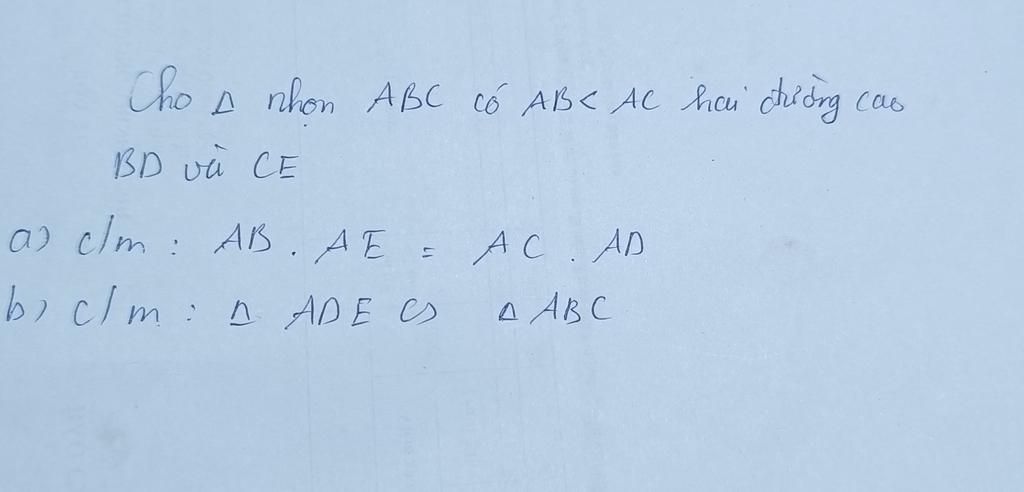 Cho Δ nhọn ABC có AB < AC hai đường cao
BD và CE
a) c/m : AB . AE = AC . AD
b) c/m : Δ ADE ∽ Δ ABC